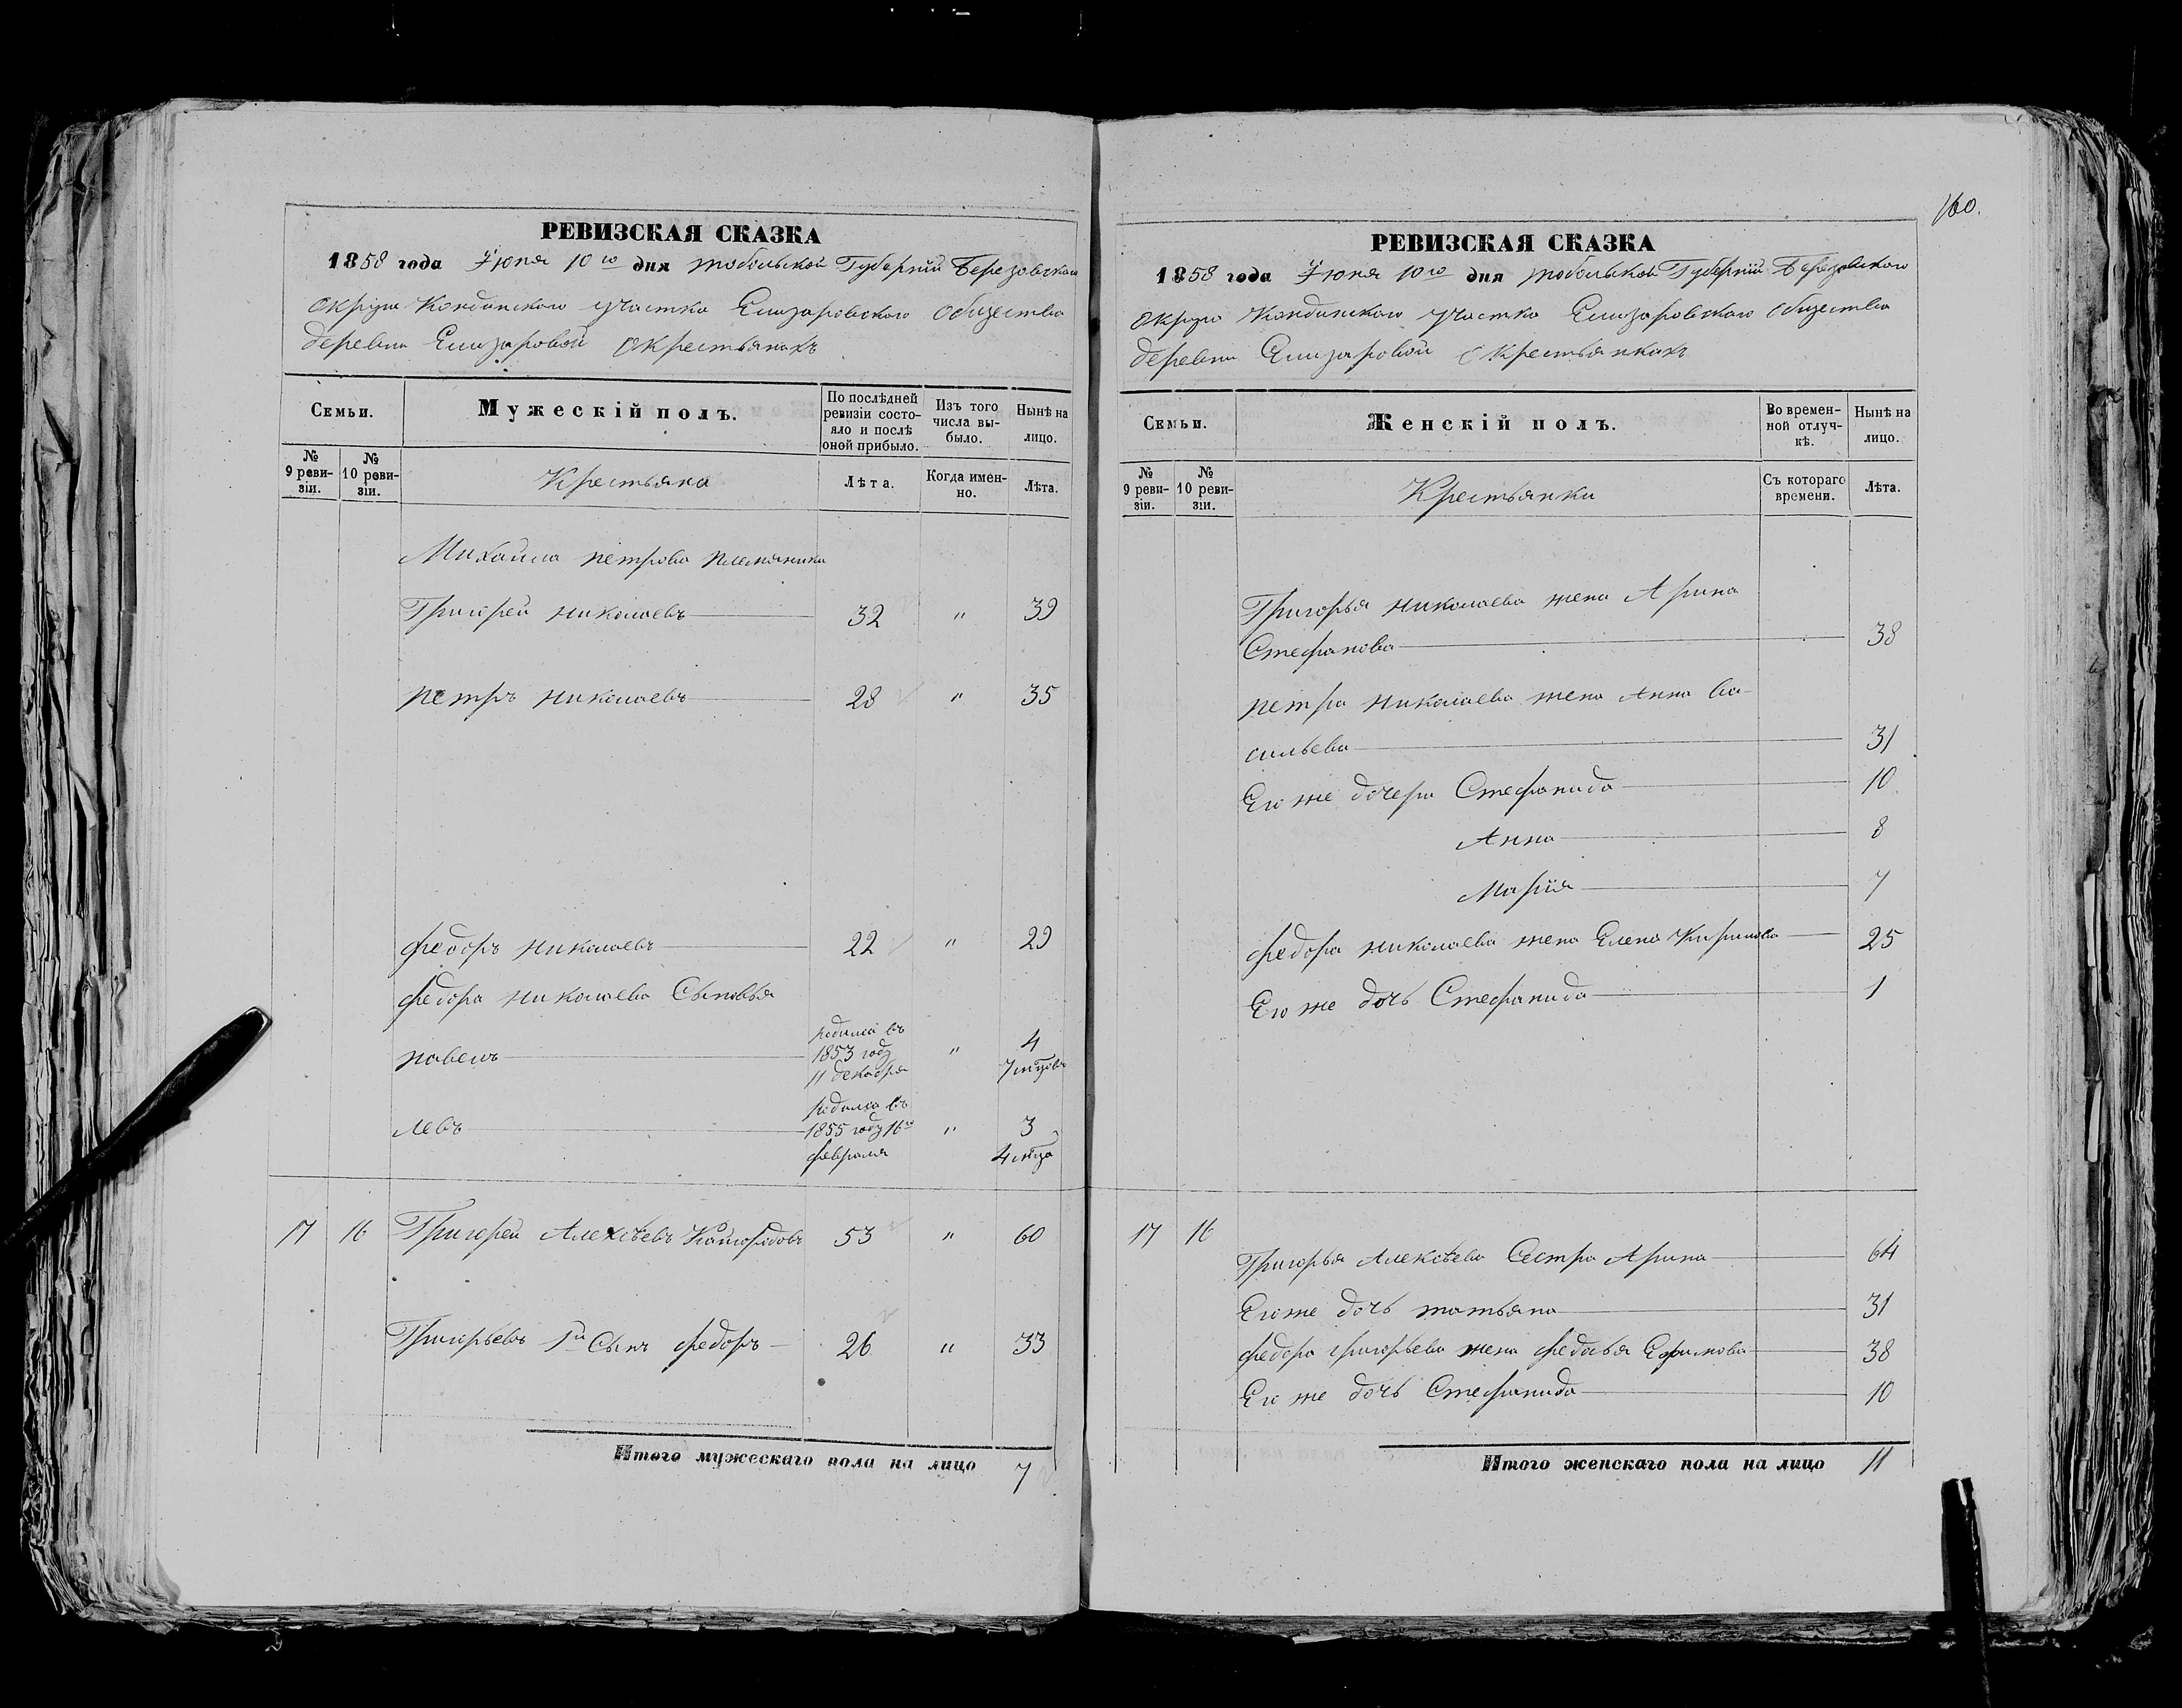 160.
РЕВИЗСКАЯ СКАЗКА
1858 года Іюня 10го дня тобольской Губерніи Березовскаго
округа Кондинскаго участка Елизаровскаго общества
деревни Елизаровой окрестьянахъ
Семьи.
Мужескій полъ.
По послѣдней
ревизіи состо-
яло и послѣ
оной прибыло.
Изъ того
числа вы-
было.
Нынѣ на
лицо.
№
9 реви-
зіи.
№
10 реви-
зіи.
Крестьяне
Лѣта.
Когда имен-
но.
Лѣта.
Михаила петрова племянники
Григорей николаевъ 32 " 39
петръ николаевъ 28 " 35
федоръ николаевъ 22 " 29
федора николаева Сыновья
павелъ
родился въ
1853 году
11 декабря
"
4
7 мцовъ
левъ
родился въ
1855 году 16го
февраля
"
3
4 мца
17 16 Григорей Алексѣевъ Кайгородовъ 53 " 60
Григорьевъ 1й Сынъ федоръ 26 " 33
Итого мужескаго пола на лицо 7
РЕВИЗСКАЯ СКАЗКА
1858 года Іюня 10го дня тобольской Губерніи Березовскаго
округа Кондинскаго участка Елизаровскаго общества
деревни Елизаровой окрестьянкахъ
Семьи.
Женскій полъ.
Во времен-
ной отлуч-
кѣ.
Нынѣ на
лицо.
№
9 реви-
зіи.
№
10 реви-
зіи.
Крестьянки
Съ котораго
времени.
Лѣта.
Григорья николаева жена Арина
Стефанова 38
петра николаева жена Анна ва-
сильева 31
Его же дочери Стефанида 10
Анна 8
Марія 7
федора николаева жена Елена Кирилова 25
Его же дочь Стефанида 1
17 16
Григорья Алексѣева Сестра Арина 64
Его же дочь татьяна 31
федора григорьева жена федосья Ефимова 38
Его же дочь Стефанида 10
Итого женскаго пола на лицо 11